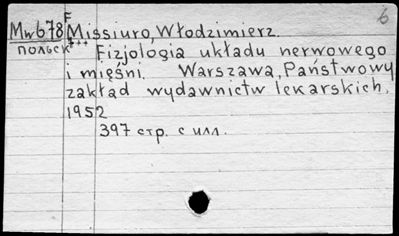 F 6
Mw678 Missiuro, Włodzimierz.
польск+++ Fizjologia układu nerwowego
i mięśni. Warszawa, Państwowy
zakład wydawnictw lekarskich,
1952
397 стр. с илл.